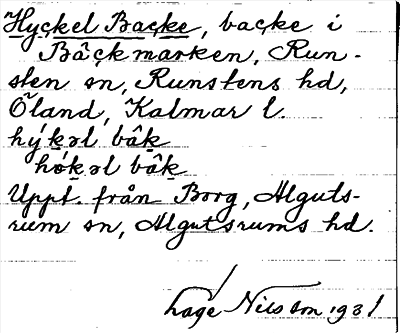 Hyckel Backe, backe i
Bäckmarken, Run-
sten sn, Runstens hd,
Öland, Kalmar l.
hýk̯əl bâk̯
hǿk̯əl bâk̯
Uppt. från Borg, Alguts-
rum sn, Algutsrums hd.
Lage Nilsson 1931